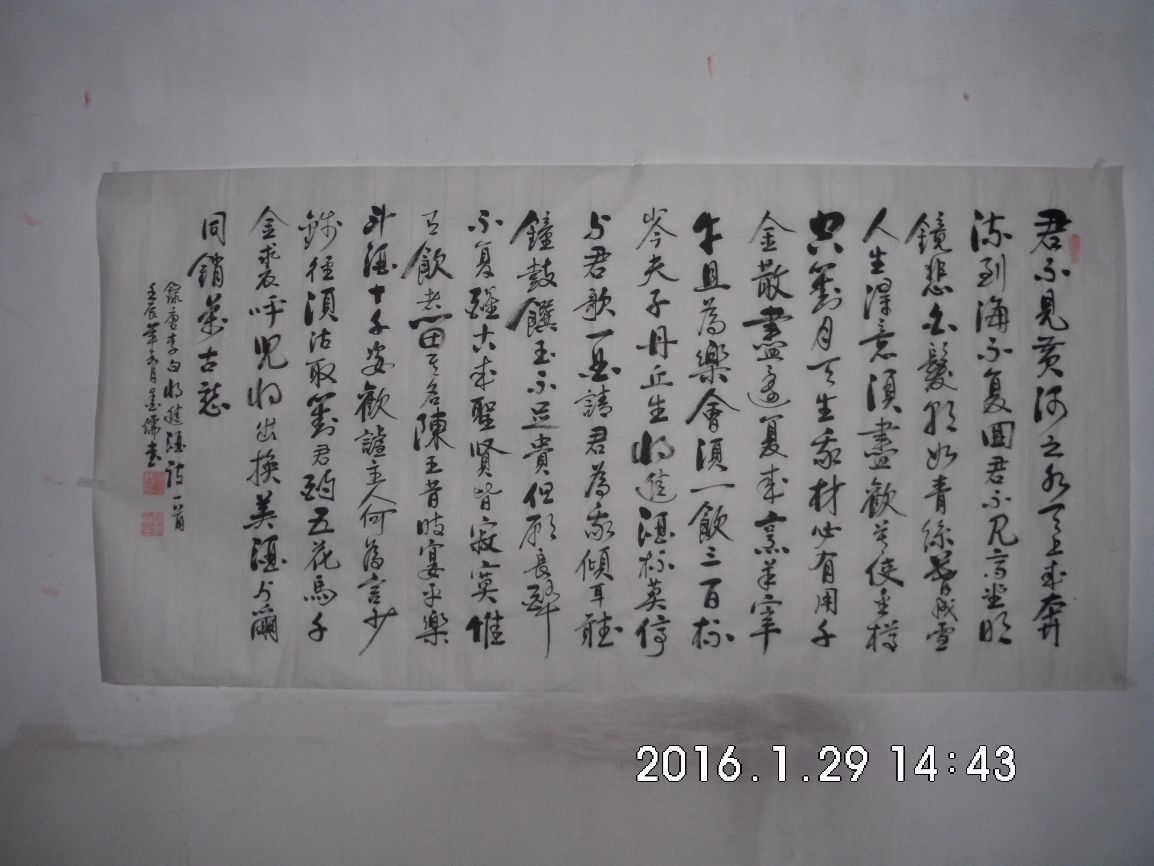 君不見黄河之水天上来奔
流到海不复回君不見高堂明
鏡悲白髮朝如青絲暮成雪
人生得意須盡歡莫使金樽
空對月天生我材必有用千
金散盡還复来烹羊宰
牛且為樂會須一飲三百杯
岑夫子丹丘生将進酒杯莫停
与君歌一曲請君為我傾耳聽
鐘鼓饌玉不足貴但願長醉
不复醒古来聖賢皆寂寞惟
有飲者留其名陳王昔時宴平樂
斗酒十千恣歡謔主人何為言少
錢徑須沽取對君酌五花馬千
金裘呼兒将出換美酒与爾
同銷萬古愁
錄唐李白将進酒詩一首
壬辰年月書
2016.1.29 14:43